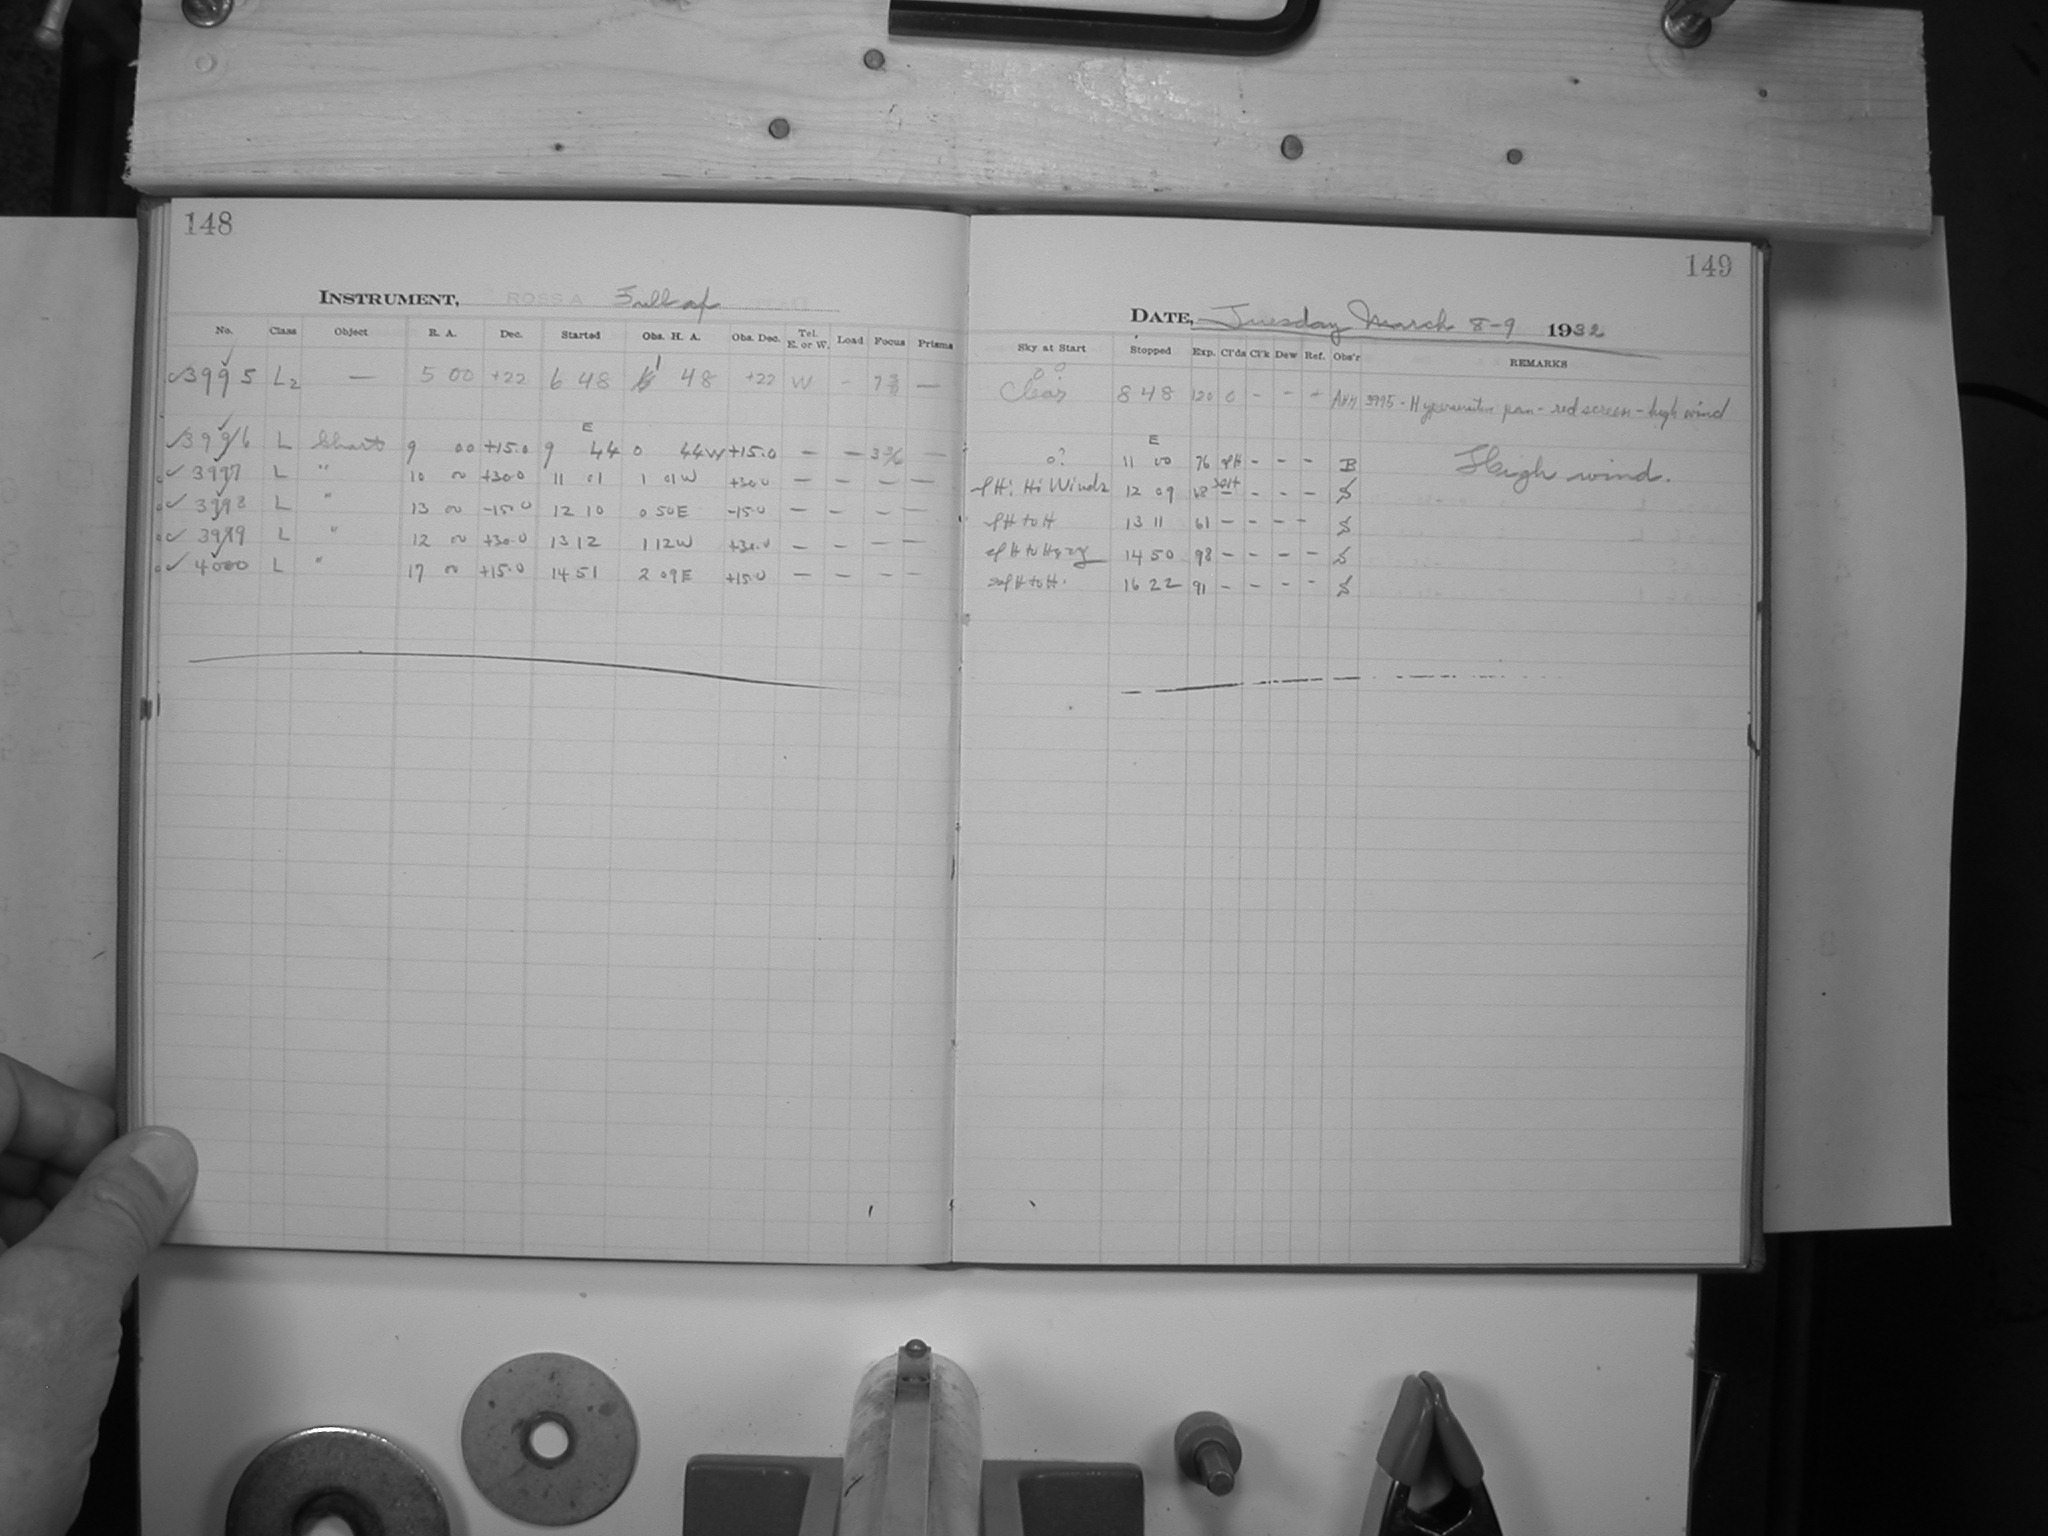 148
INSTRUMENT, ROSS A Full ap
No. Class Object R. A. Dec. Started Obs. H. A. Obs. Dec. Tel. E. or W. Load Focus Prisms
✓3995 L2 — 5 00 +22 6 48 1 48 +22 W - 7 —
E
✓3996 L Chart 9 00 +15.0 9 44 0 44W +15.0 — — —
✓3997 L " 10 00 +30.0 11 01 1 01W +30.0 — — — —
✓3998 L " 13 00 -15.0 12 10 0 50E -15.0 — — — —
✓3999 L " 12 00 +30.0 13 12 1 12W +30.0 — — — —
✓4000 L " 17 00 +15.0 14 51 2 09E +15.0 — — — —
149
DATE, Tuesday March 8-9 1932
Sky at Start Stopped Exp. Cl'ds Cl'k Dew Ref. Obs'r REMARKS
Clear 8 48 120 0 - - - 3995 - Hypersensitive pan - red screen - high wind
E
0? 11 00 76 - - - B High wind.
Hi Winds 12 09 68 - - - S
to H 13 11 61 - - - - S
14 50 98 - - - - S
to H. 16 22 91 - - - - S